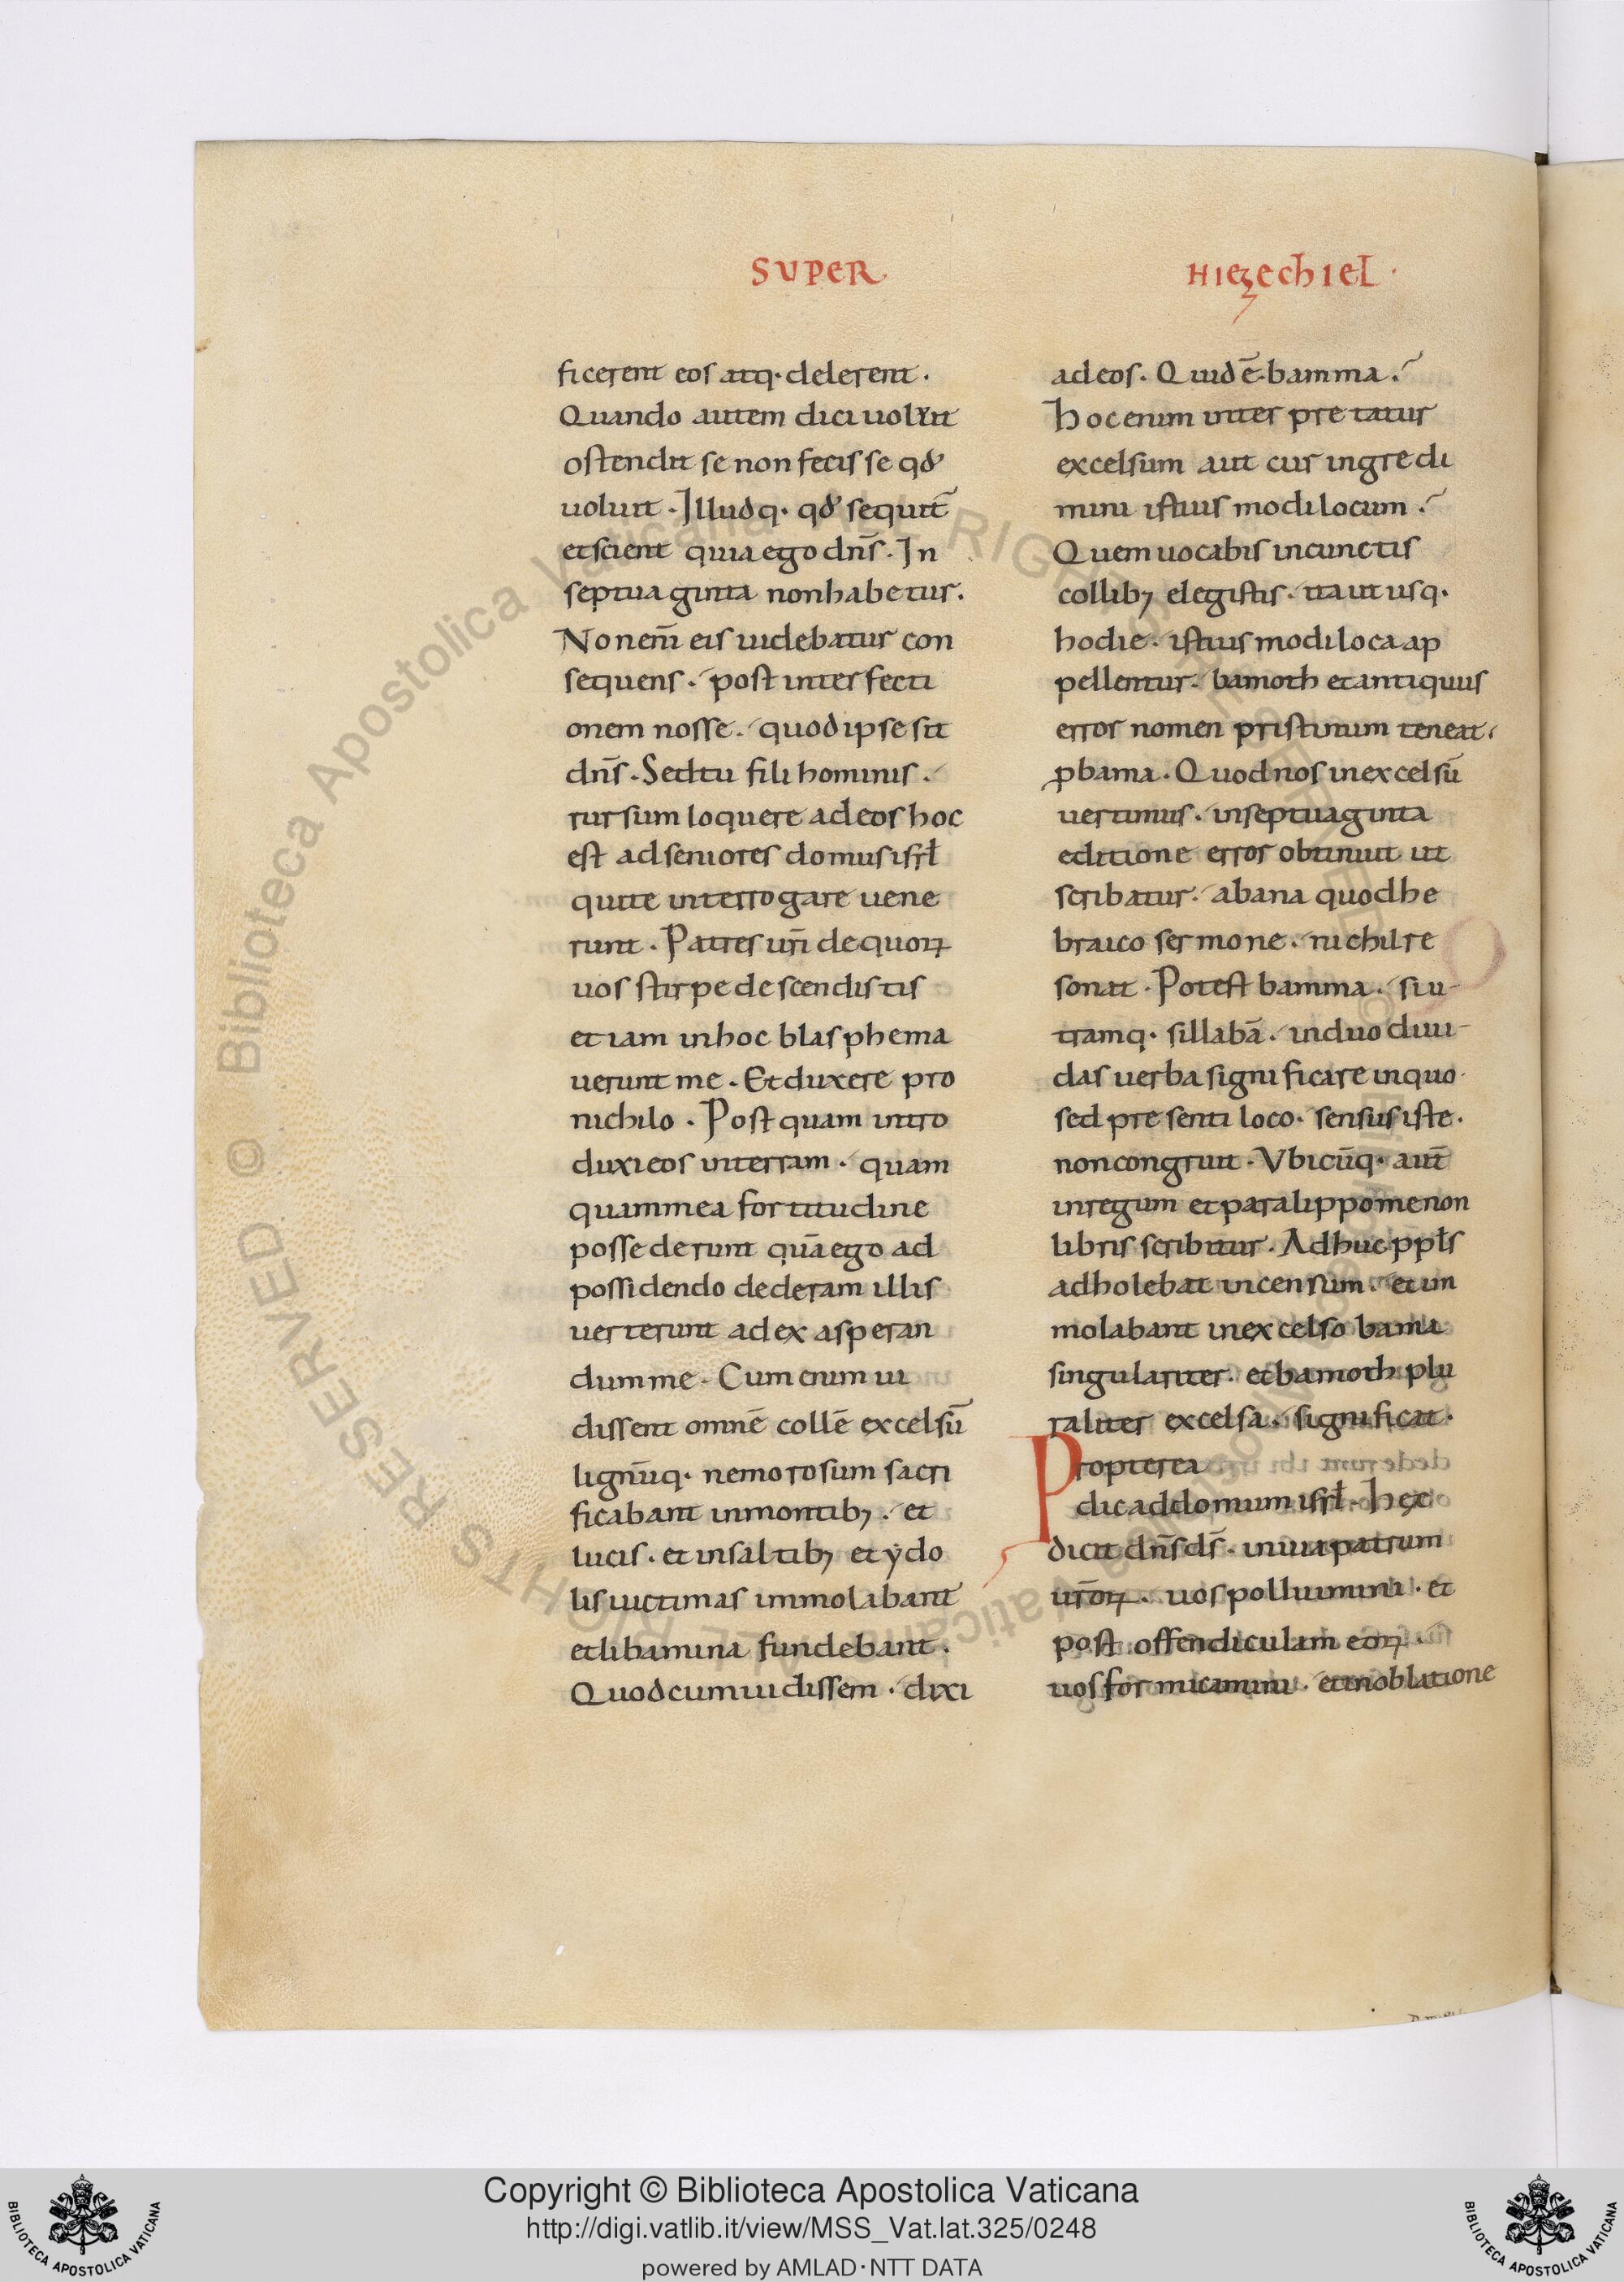 SUPER
ficerent eos atq· delerent.
Quando autem dici uoluit
ostendit se non fecisse qđ
uoluit. Illudq· qđ sequit̄
et scient quia ego dn̄s. In
septuaginta non habetur.
Non eni̅ eis uidebatur con
sequens. post interfecti
onem nosse. quod ipse sit
dn̄s. Sed tu fili hominis.
rursum loquere ad eos hoc
est ad seniores domus isrł
qui te interrogare uene
runt. Patres ur̄i de quoꝝ
uos stirpe descendistis
etiam in hoc blasphema
uerunt me. Et duxere pro
nichilo. Postquam intro
duxi eos in terram. quam
quam mea fortitudine
possederunt quā ego ad
possidendo dederam illis
uerterunt ad exasperan
dum me. Cum enim ui
dissent omnē collē excelsū
lignūq· nemorosum sacri
ficabant in montibꝫ. et
lucis. et in saltibꝫ et ydo
lis uictimas immolabant
et libamina fundebant.
Quod cum uidissem. dixi
HIEZECHIEL·
ad eos. Quid ē bamma?
Hoc enim interpretatur
excelsum aut cur ingredi
mini istius modi locum?
Quem uocabis in cunctis
collibꝫ elegistis. ita ut usq·
hodie. istius modi loca ap
pellentur. bamoth et antiquus
error nomen pristinum teneat.
ꝓ bama. Quod nos in excelsū
uertimus. in septuaginta
editione error obtinuit ut
scribatur. abana quod he
braico sermone. nichil re
sonat. Potest bamma. si u-
tramq· sillabā. in duo diui-
das uerba significare in quo.
sed presenti loco. sensus iste.
non congruit. Vbicūq· aut̄
in regum et paralippomenon
libris scribitur. Adhuc ppłs
adholebat incensum. et im
molabant in excelso bama
singulariter. et bamoth plu
raliter excelsa. significat.
Propterea
dic ad domum isrł. Hęc
dicit dn̄s ds̄. in uia patrum
ur̄oꝝ. uos polluimini. et
post offendiculam eoꝝ.
uos fornicamini. et in oblatione
Copyright © Biblioteca Apostolica Vaticana
http://digi.vatlib.it/view/MSS_Vat.lat.325/0248
powered by AMLAD·NTT DATA
BIBLIOTECA APOSTOLICA VATICANA
BIBLIOTECA APOSTOLICA VATICANA